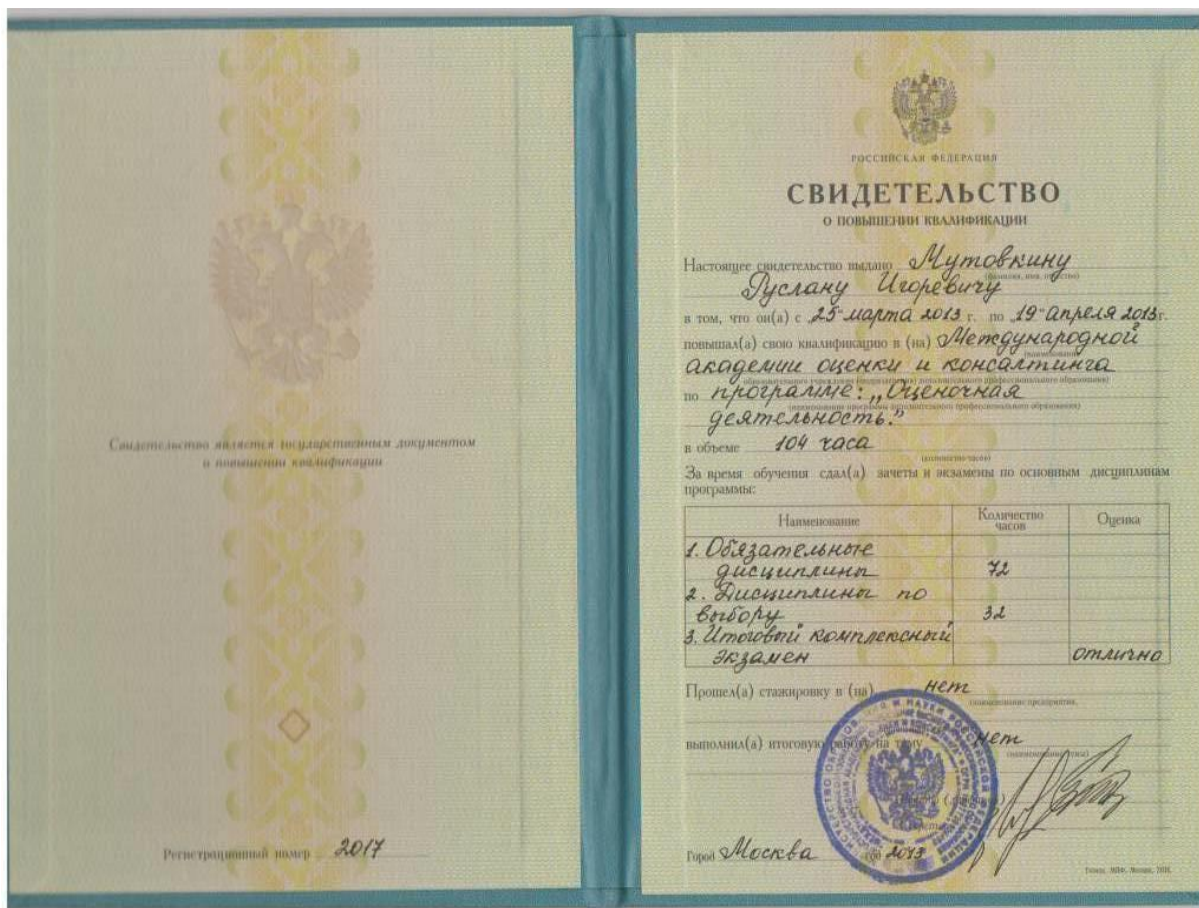 Свидетельство является государственным документом
о повышении квалификации
Регистрационный номер 2017
РОССИЙСКАЯ ФЕДЕРАЦИЯ
СВИДЕТЕЛЬСТВО
О ПОВЫШЕНИИ КВАЛИФИКАЦИИ
Настоящее свидетельство выдано Мутовкину
(фамилия, имя, отчество)
Руслану Игоревичу
в том, что он(а) с „25“ марта 2013 г. по „19“ апреля 2013 г.
повышал(а) свою квалификацию в (на) Международной
(наименование
академии оценки и консалтинга
образовательного учреждения (подразделения) дополнительного профессионального образования)
по программе: „Оценочная
(наименование программы дополнительного профессионального образования)
деятельность.“
в объеме 104 часа
(количество часов)
За время обучения сдал(а) зачеты и экзамены по основным дисциплинам
программы:
Наименование Количество часов Оценка
1. Обязательные
дисциплины 72
2. Дисциплины по
выбору 32
3. Итоговый комплексный
экзамен отлично
Прошел(а) стажировку в (на) нет
(наименование предприятия,
выполнил(а) итоговую работу на тему нет
(наименование темы)
Город Москва год 2013